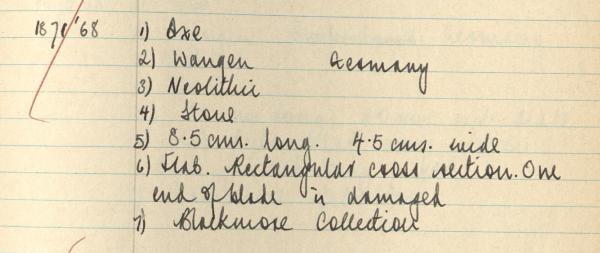 1871/'68 1) Axe
2) Wangen Germany
3) Neolithic
4) Stone
5) 8.5 cms. long. 4.5 cms. wide
6) Slab. Rectangular cross section. One
end of blade is damaged
7) Blackmore Collection